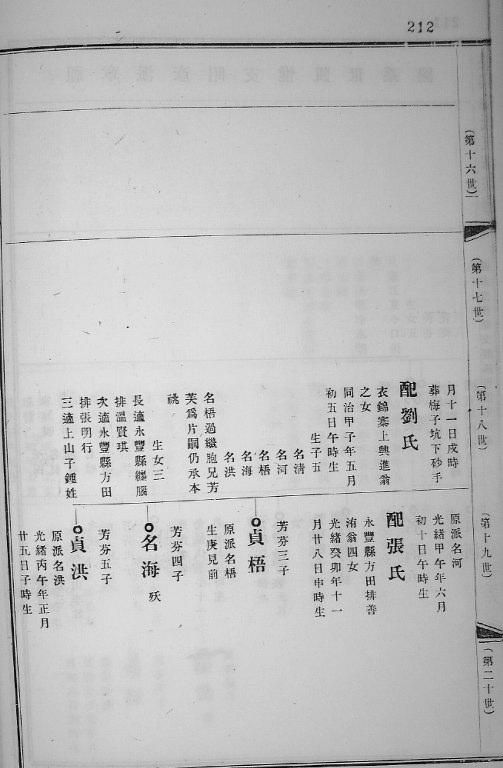 212
(第十六世)
(第十七世)
(第十八世)
(第十九世)
(第二十世)
月十一日戌時
葬梅子坑下砂手
配劉氏
衣錦寨上興進翁
之女
同治甲子年五月
初五日午時生
生子五
名清
名河
名梧
名海
名洪
名梧過繼胞兄芳
芙為片嗣仍承本
祧
生女三
長適永豐縣纏腦
排溫賢琪
次適永豐縣方田
排張明行
三適上山子鍾姓
原派名河
光緒甲午年六月
初十日午時生
配張氏
永豐縣方田排善
洧翁四女
光緒癸卯年十一
月廿八日申時生
芳芬三子
貞梧
原派名梧
生庚見前
芳芬四子
名海 殀
芳芬五子
貞洪
原派名洪
光緒丙午年正月
廿五日子時生